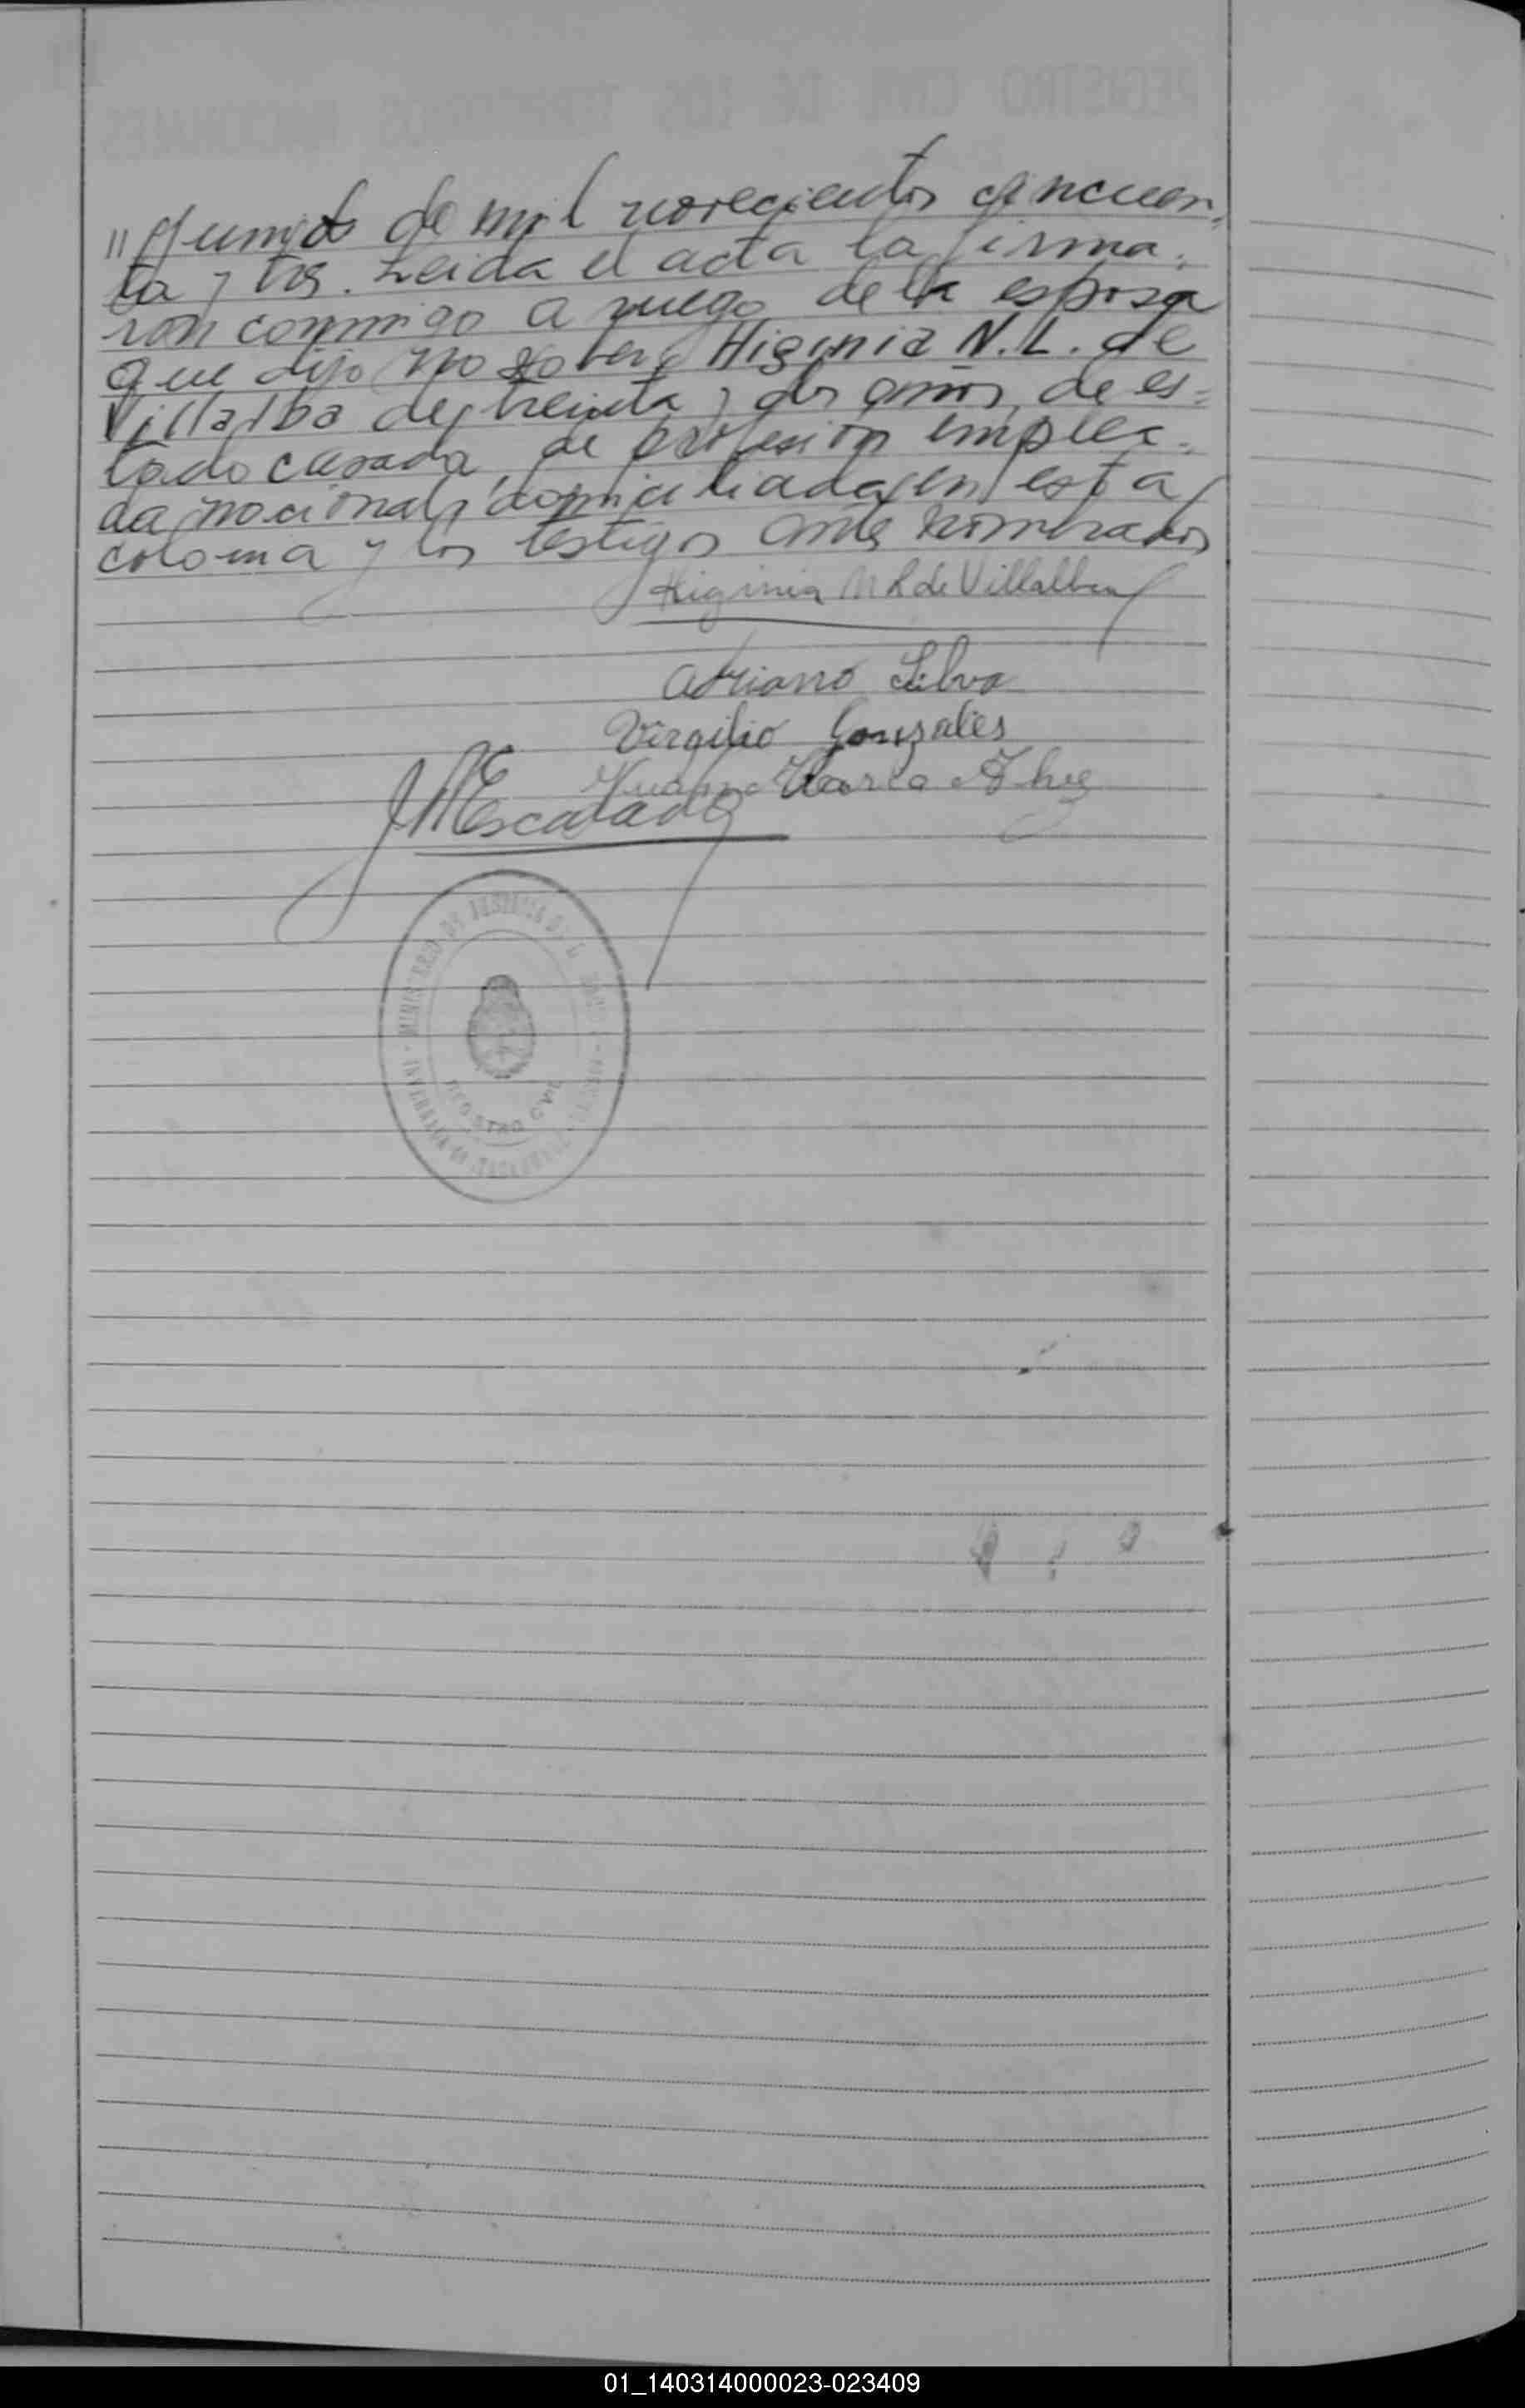 REGISTRO CIVIL DE LOS TERRITORIOS NACIONALES
de mil novecientos cincuen-
ta y tres. Leida el acta la firma-
ron conmigo a ruego de la esposa
que dijo no saber, Higinia N. L. de
Villalba de treinta y dos años, de es-
tado casada, de profesión emplea-
da nacional, domiciliada en esta
colonia y los testigos ante nombrados
Higinia N L de Villalba
Adriano Silva
Virgilio Gonzales
Escalada
MINISTERIO DE JUSTICIA
REGISTRO CIVIL
01_140314000023-023409